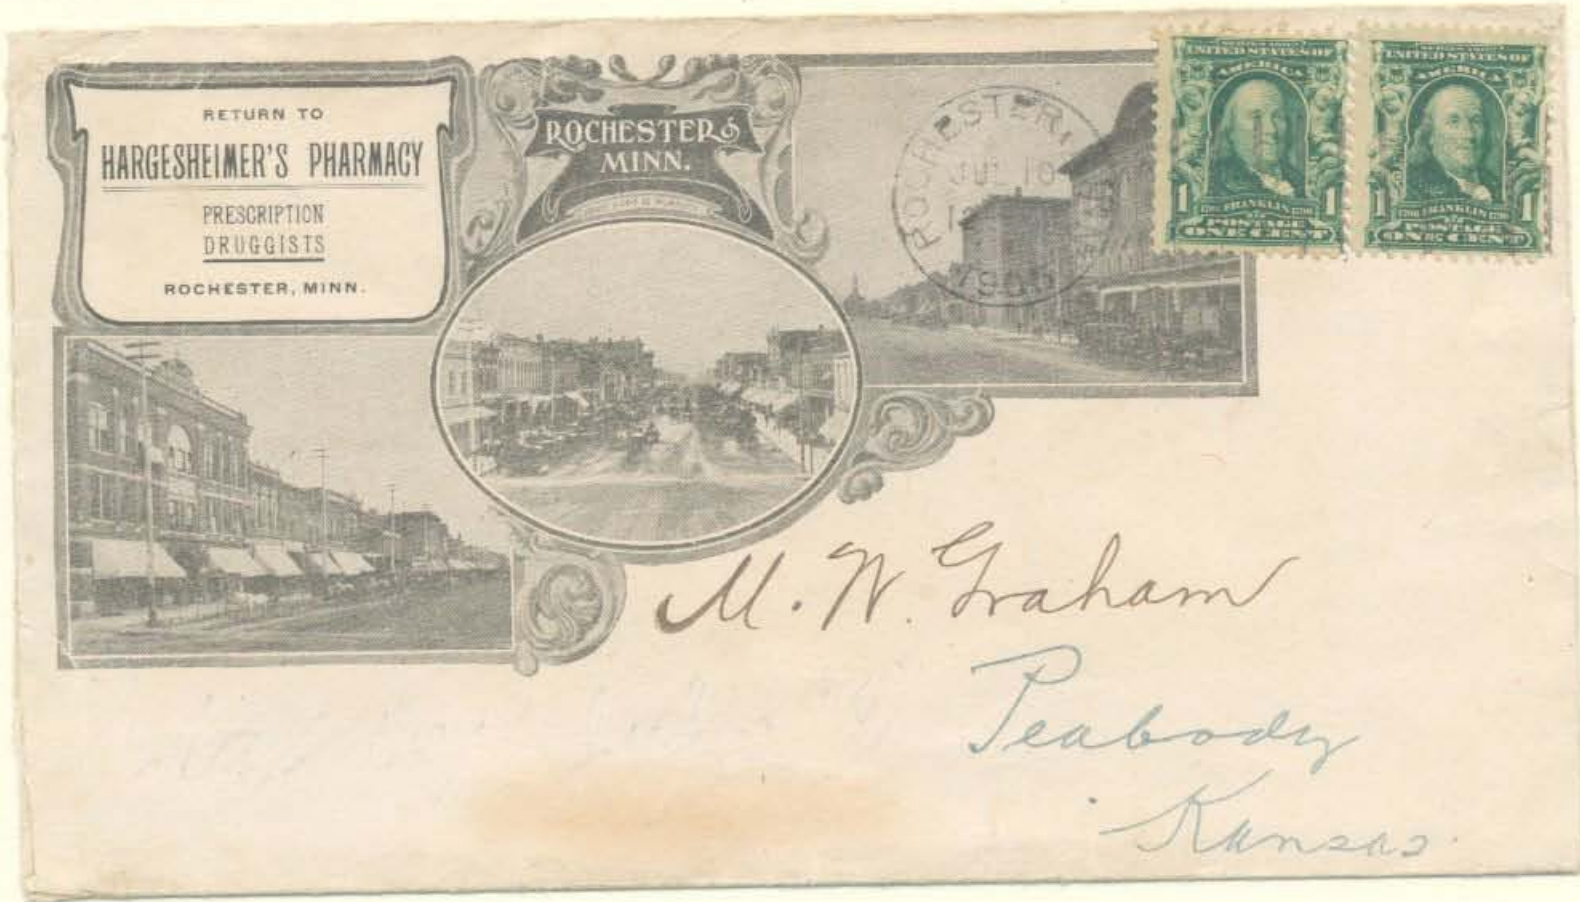 RETURN TO
HARGESHEIMER'S PHARMACY
PRESCRIPTION
DRUGGISTS
ROCHESTER, MINN.
ROCHESTER
MINN.
ROCHESTER,
10
SERIES 1902
UNITED STATES OF
AMERICA
1 FRANKLIN 1
POSTAGE
ONE CENT
SERIES 1902
UNITED STATES OF
AMERICA
1 1706 FRANKLIN 1790 1
POSTAGE
ONE CENT
M. W. Graham
Peabody
Kansas.